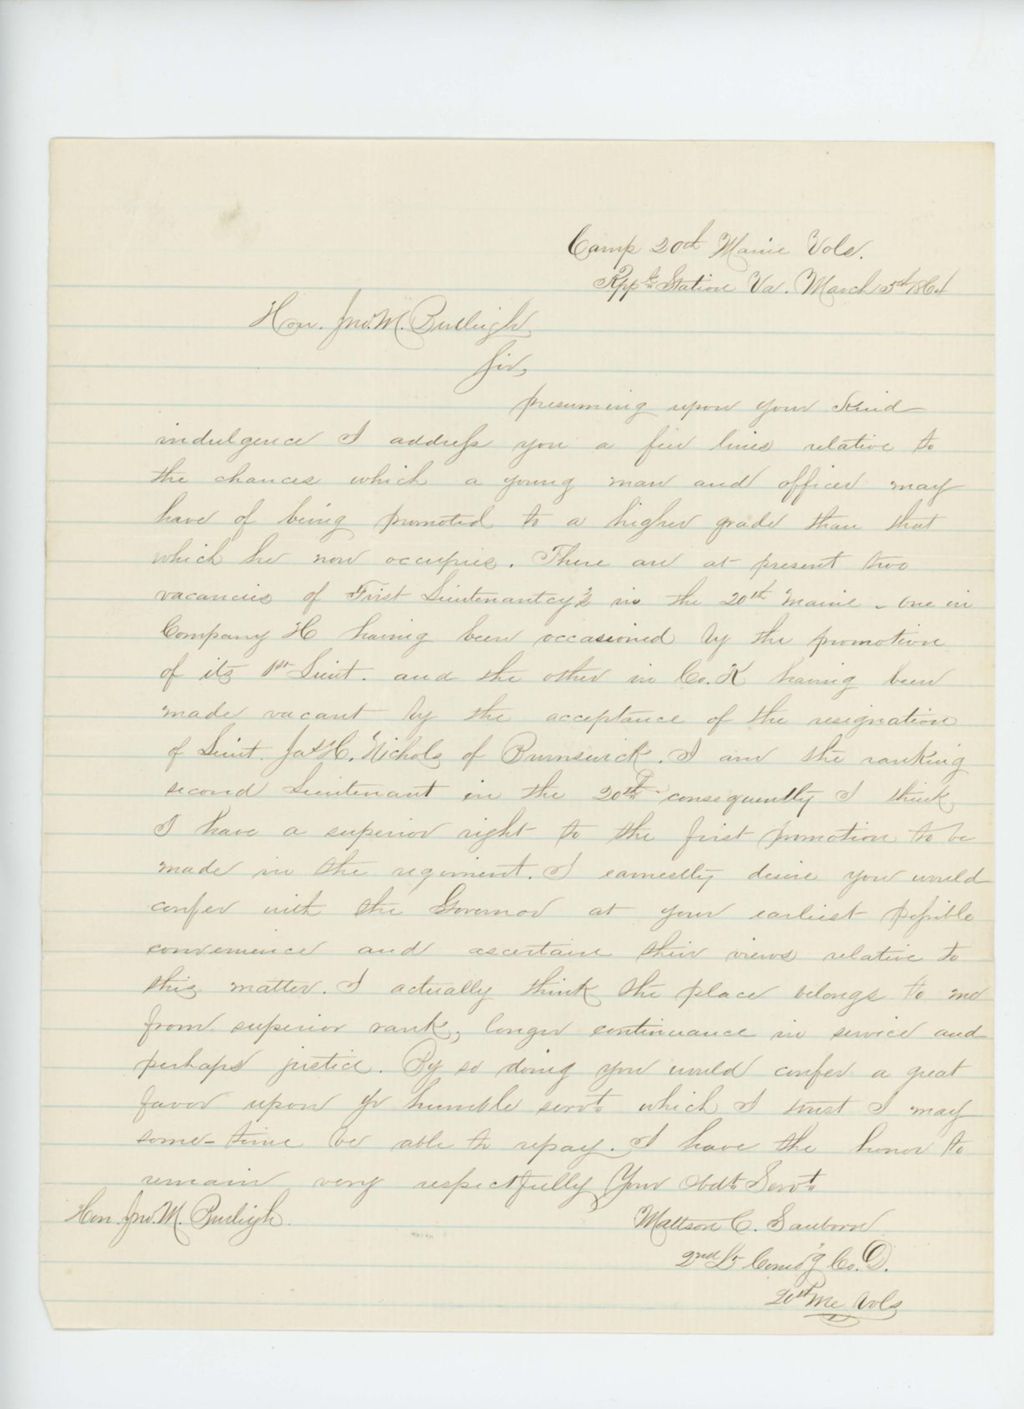 Camp 20th Maine Vols.
Rpp'k Station Va. March 5th 1864
Hon. Jno. M. Burleigh
Sir,
presuming upon your kind
indulgence I address you a few lines relative to
the chances which a young man and officer may
have of being promoted to a higher grade than that
which he now occupies. There are at present two
vacancies of First Lieutenantcy's in the 20th Maine - one in
Company H having been occasioned by the promotion
of its 1st Lieut. and the other in Co. K having been
made vacant by the acceptance of the resignation
of Lieut. Jas H. Nichols of Brunswick. I am the ranking
second Lieutenant in the 20th consequently I think
I have a superior right to the first promotion to be
made in the regiment. I earnestly desire you would
confer with the Governor at your earliest possible
convenience and ascertain their views relative to
this matter. I actually think the place belongs to me
from superior rank, longer continuance in service and
perhaps justice. By so doing you would confer a great
favor upon yr humble servt. which I trust I may
some-time be able to repay. I have the honor to
remain very respectfully Your Obdt. Servt.
Hon. Jno. M. Burleigh
Mattson C. Sanborn
2nd Lt Comd'g Co. D.
20th Me Vols